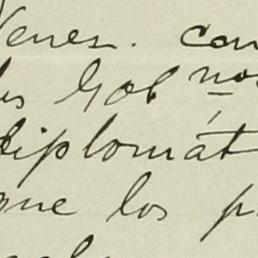 Venez. con
los Gob.nos
diplomát
que los p